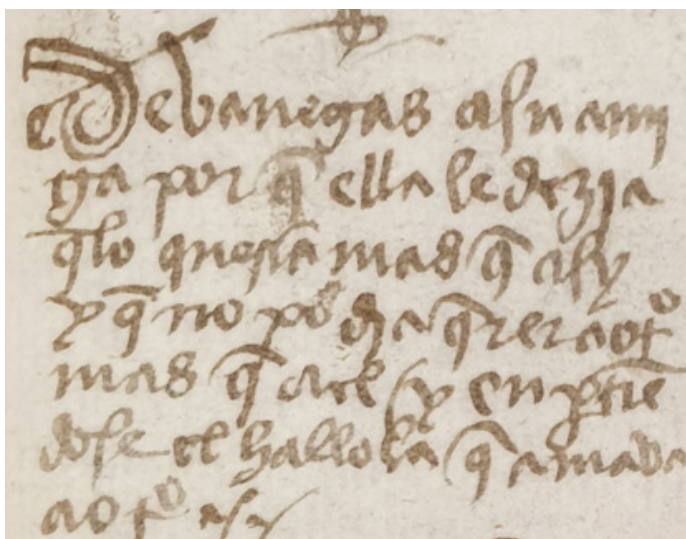 de banegas a su ami
ga por q̄ ella le dezia
q̄ lo queria mas q̄ a sy
y q̄ no podia q̄rer a otº
mas q̄ a el sy en ptiē
dose el hallola q̄ amaba
a otº asy